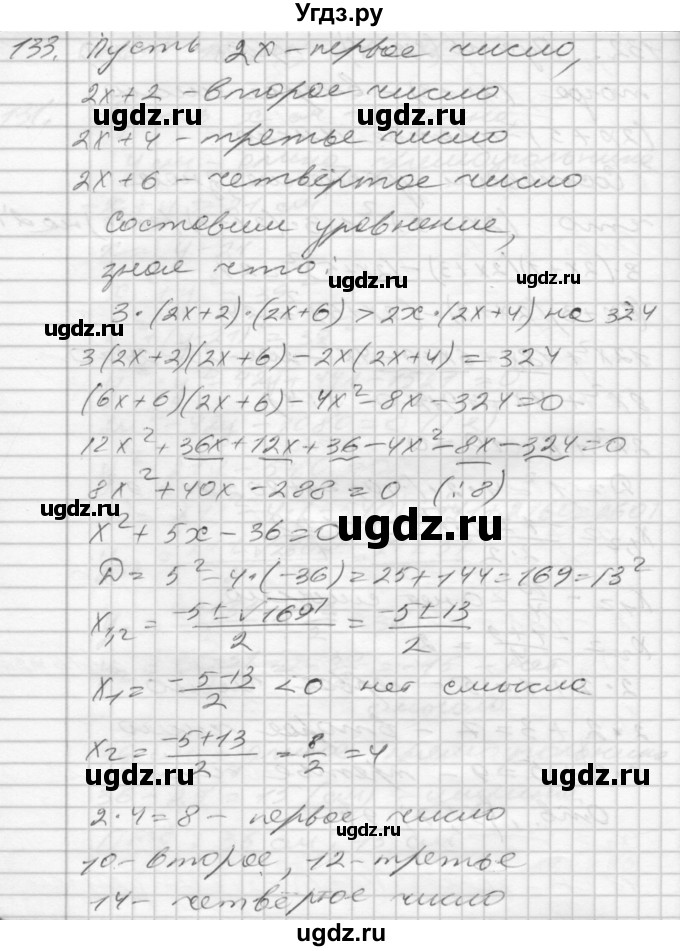 Угдз.ру
133. Пусть 2x – первое число,
2x+2 – второе число
ugdz.ru ugdz.ru
2x+4 – третье число
2x+6 – четвёртое число
Составим уравнение,
зная что:
ugdz.ru ugdz.ru
3·(2x+2)·(2x+6) > 2x·(2x+4) на 324
ugdz.ru
3(2x+2)(2x+6) – 2x(2x+4) = 324
(6x+6)(2x+6) – 4x² – 8x – 324 = 0
12x² + 36x + 12x + 36 – 4x² – 8x – 324 = 0
8x² + 40x – 288 = 0 (:8)
ugdz.ru
x² + 5x – 36 = 0
ugdz.ru
D = 5² – 4·(–36) = 25 + 144 = 169 = 13²
x1,2 = (–5 ± √169)/2 = (–5 ± 13)/2
ugdz.ru ugdz.ru
x1 = (–5–13)/2 < 0 нет смысла
x2 = (–5+13)/2 = 8/2 = 4
ugdz.ru ugdz.ru
2·4 = 8 – первое число
ugdz.ru
10 – второе, 12 – третье
14 – четвёртое число
ugdz.ru